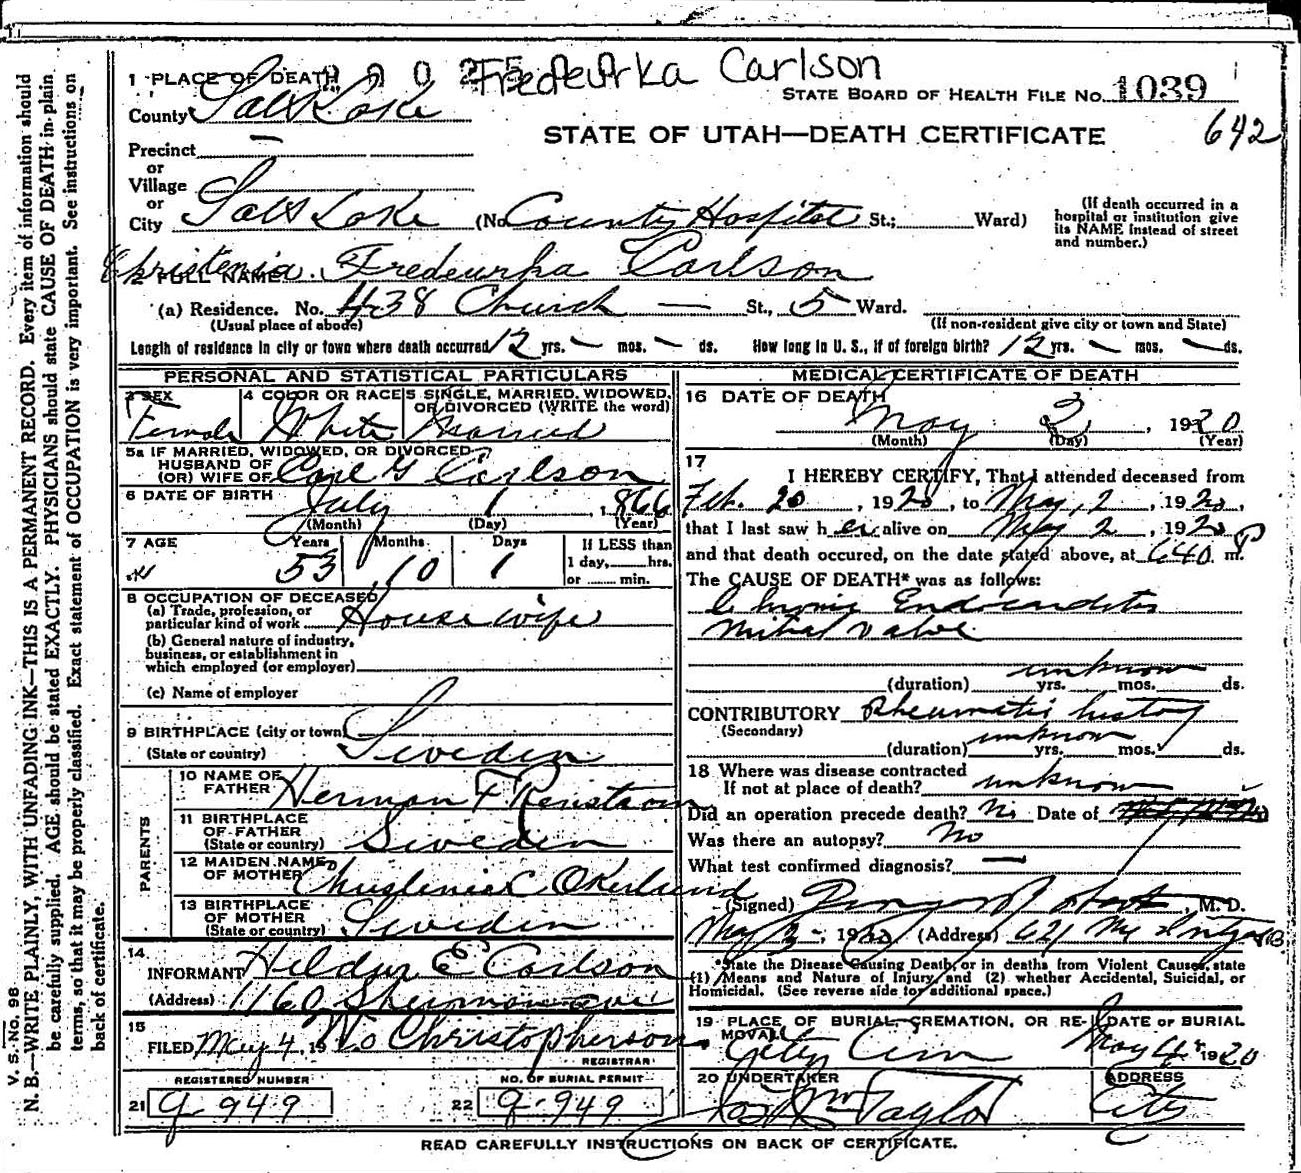 Fredeurka Carlson
1 PLACE OF DEATH
STATE BOARD OF HEALTH FILE No. 1039
County Salt Lake
STATE OF UTAH—DEATH CERTIFICATE
642
Precinct —
or
Village
or
City Salt Lake (No. County Hospital St.; Ward)
(If death occurred in a hospital or institution give its NAME instead of street and number.)
2 FULL NAME Christenia Fredeurka Carlson
(a) Residence. No. 438 Church — St., 5 Ward.
(Usual place of abode) (If non-resident give city or town and State)
Length of residence in city or town where death occurred 12 yrs. — mos. — ds. How long in U. S., if of foreign birth? 12 yrs. — mos. — ds.
PERSONAL AND STATISTICAL PARTICULARS
3 SEX 4 COLOR OR RACE 5 SINGLE, MARRIED, WIDOWED, OR DIVORCED (WRITE the word)
Female White Married
5a IF MARRIED, WIDOWED, OR DIVORCED
HUSBAND OF
(OR) WIFE OF Carl G Carlson
6 DATE OF BIRTH July 1, 1866
(Month) (Day) (Year)
7 AGE Years Months Days If LESS than
53 10 1 1 day, hrs.
or min.
8 OCCUPATION OF DECEASED
(a) Trade, profession, or
particular kind of work House wife
(b) General nature of industry,
business, or establishment in
which employed (or employer)
(c) Name of employer
9 BIRTHPLACE (city or town)
(State or country) Sweden
PARENTS
10 NAME OF
FATHER Herman F Renstrom
11 BIRTHPLACE
OF FATHER
(State or country) Sweden
12 MAIDEN NAME
OF MOTHER Christenia C Okerlund
13 BIRTHPLACE
OF MOTHER
(State or country) Sweden
14
INFORMANT Hildur E Carlson
(Address) 1160 Sherman ave
15
FILED May 4, 19 Christopherson
REGISTRAR
REGISTERED NUMBER NO. OF BURIAL PERMIT
21 9-949 22 9-949
MEDICAL CERTIFICATE OF DEATH
16 DATE OF DEATH
May 2, 1920
(Month) (Day) (Year)
17
I HEREBY CERTIFY, That I attended deceased from
Feb. 20, 1920, to May, 2, 1920,
that I last saw her alive on May 2, 1920
and that death occured, on the date stated above, at 640 P m.
The CAUSE OF DEATH* was as follows:
Chronic Endocarditis
Mitral Valve
unknow
(duration) yrs. mos. ds.
CONTRIBUTORY Rheumatic history
(Secondary) unknow
(duration) yrs. mos. ds.
18 Where was disease contracted
If not at place of death? unknow
Did an operation precede death? No Date of
Was there an autopsy? No
What test confirmed diagnosis? —
(Signed) , M. D.
May 3, 1920 (Address) 621
*State the Disease Causing Death, or in deaths from Violent Causes, state
(1) Means and Nature of Injury, and (2) whether Accidental, Suicidal, or
Homicidal. (See reverse side for additional space.)
19 PLACE OF BURIAL, CREMATION, OR RE- DATE OF BURIAL
MOVAL
City Cem May 4, 1920
20 UNDERTAKER ADDRESS
Taylor City
READ CAREFULLY INSTRUCTIONS ON BACK OF CERTIFICATE.
V. S.—No. 98
N. B.—WRITE PLAINLY, WITH UNFADING INK—THIS IS A PERMANENT RECORD. Every item of information should
be carefully supplied. AGE should be stated EXACTLY. PHYSICIANS should state CAUSE OF DEATH in plain
terms, so that it may be properly classified. Exact statement of OCCUPATION is very important. See instructions on
back of certificate.